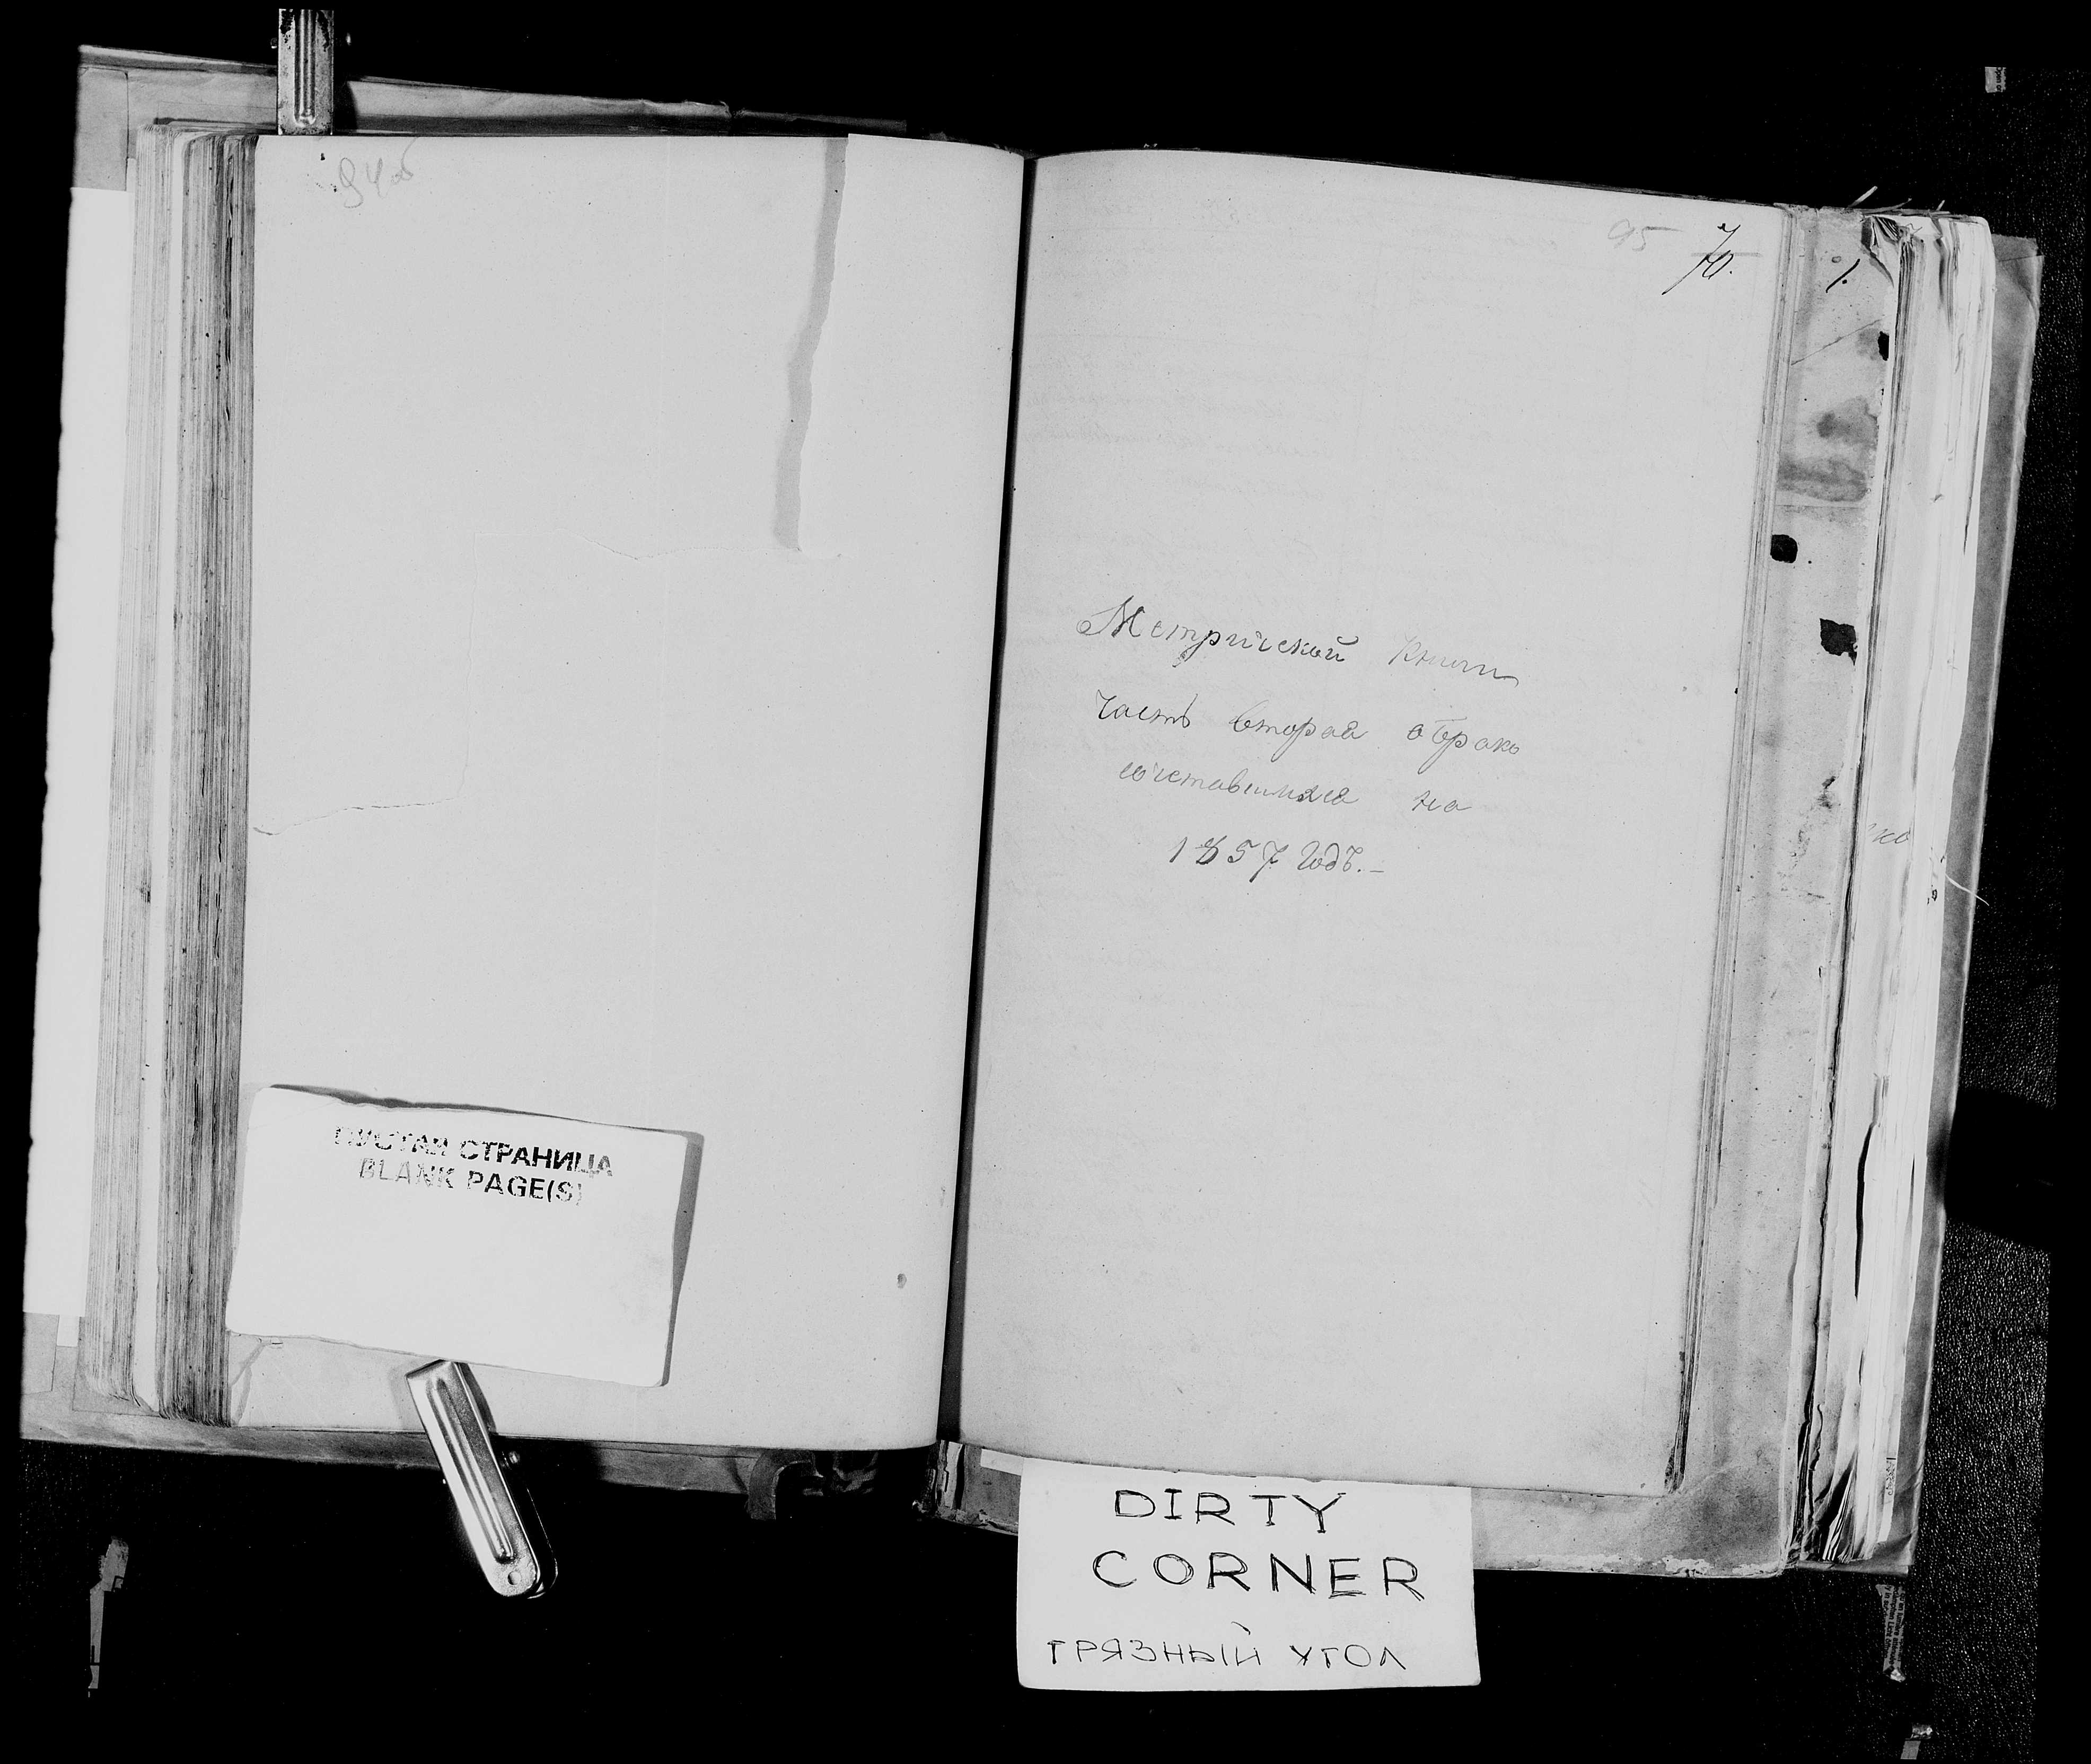 94об
95
70.
1.
Метрической Книги
Часть вторая о брако
сочетавшихся на
1857 Годъ.–
ко
ПУСТАЯ СТРАНИЦА
BLANK PAGE(S)
DIRTY
CORNER
ГРЯЗНЫЙ УГОЛ